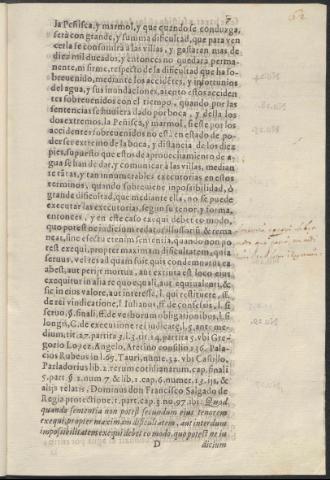 7
la Peñisca, y marmol, y que quando se conduxga,
serà con grande, y suma dificultad, que para ven
cerla se consumirà a las villas, y gastaran mas de
diez mil ducados, y entonces no quedara perma-
nente, ni firme, respecto de la dificultad que ha so-
breuenido, mediante los accidentes, y infortunios
del agua, y sus inundaciones, atento estos acciden
tes sobreuenidos con el tiempo, quando por las
sentencias se huuiera dado por boca, y desde los
dos extremos, la Peñisca, y marmol, si este por los
accidentes sobreuenidos no està en estado de po-
der ser extremo de la boca, y distancia de los diez
pies, supuesto que estos de aprouechamiento de a-
gua se han de dar, y comunicar a las villas, median
te tãtas, y tan innumerables executorias en estos
terminos, quando sobreuiene imposibilidad, ò
grande dificultad, que mediante ella, no se puede
executar las executorias, segun su tenor, y forma,
entonces, y en este caso exequi debet eo modo,
quo potest ne iudicium redatur illusoriũ, & rema
neat, sine efectu etenim sententia, quando non po
test exequi, propter maximam dificultatem, quia
seruus, vel res ad quam fuit quis condemnatus ea
abest, aut perijt mortua, aut extinta est loco eius
exequitur in alia re quoe quali, aut equiualenti, &
sic in eius valore, aut interesse, l. qui restituere, ff.
de rei vindicatione, l. sin autem, ff. de conscius, l. si
seruo, §. finali, ff. de verborum obligationibus, l. si
longi, C. de executione rei iudicate, l. 5. ante me-
dium, tit. 27. partita 3. l. 3. tit. 14. partita 5. vbi Gre-
gorio Lopez, Angelo, Aretino consilio 136. Pala-
cios Rubeus in l. 65. Tauri, nume. 32. vbi Castillo,
Parladorius lib. 2. rerum cotidianarum, cap. finali
5. part. §. 2. num 7. & lib. 1. cap. 6. numer. 13. ijs, &
alijs relatis, Dominus don Francisco Salgado de
Regia protectione, 1. part. cap. 3. no. 97. ibi: Quod
quando sententia non potest secundum eius tenorem
exequi propter maximam dificultatem, aut interdum
imposibilitatem exequi debet eo modo, quo potest ne in
D dicium